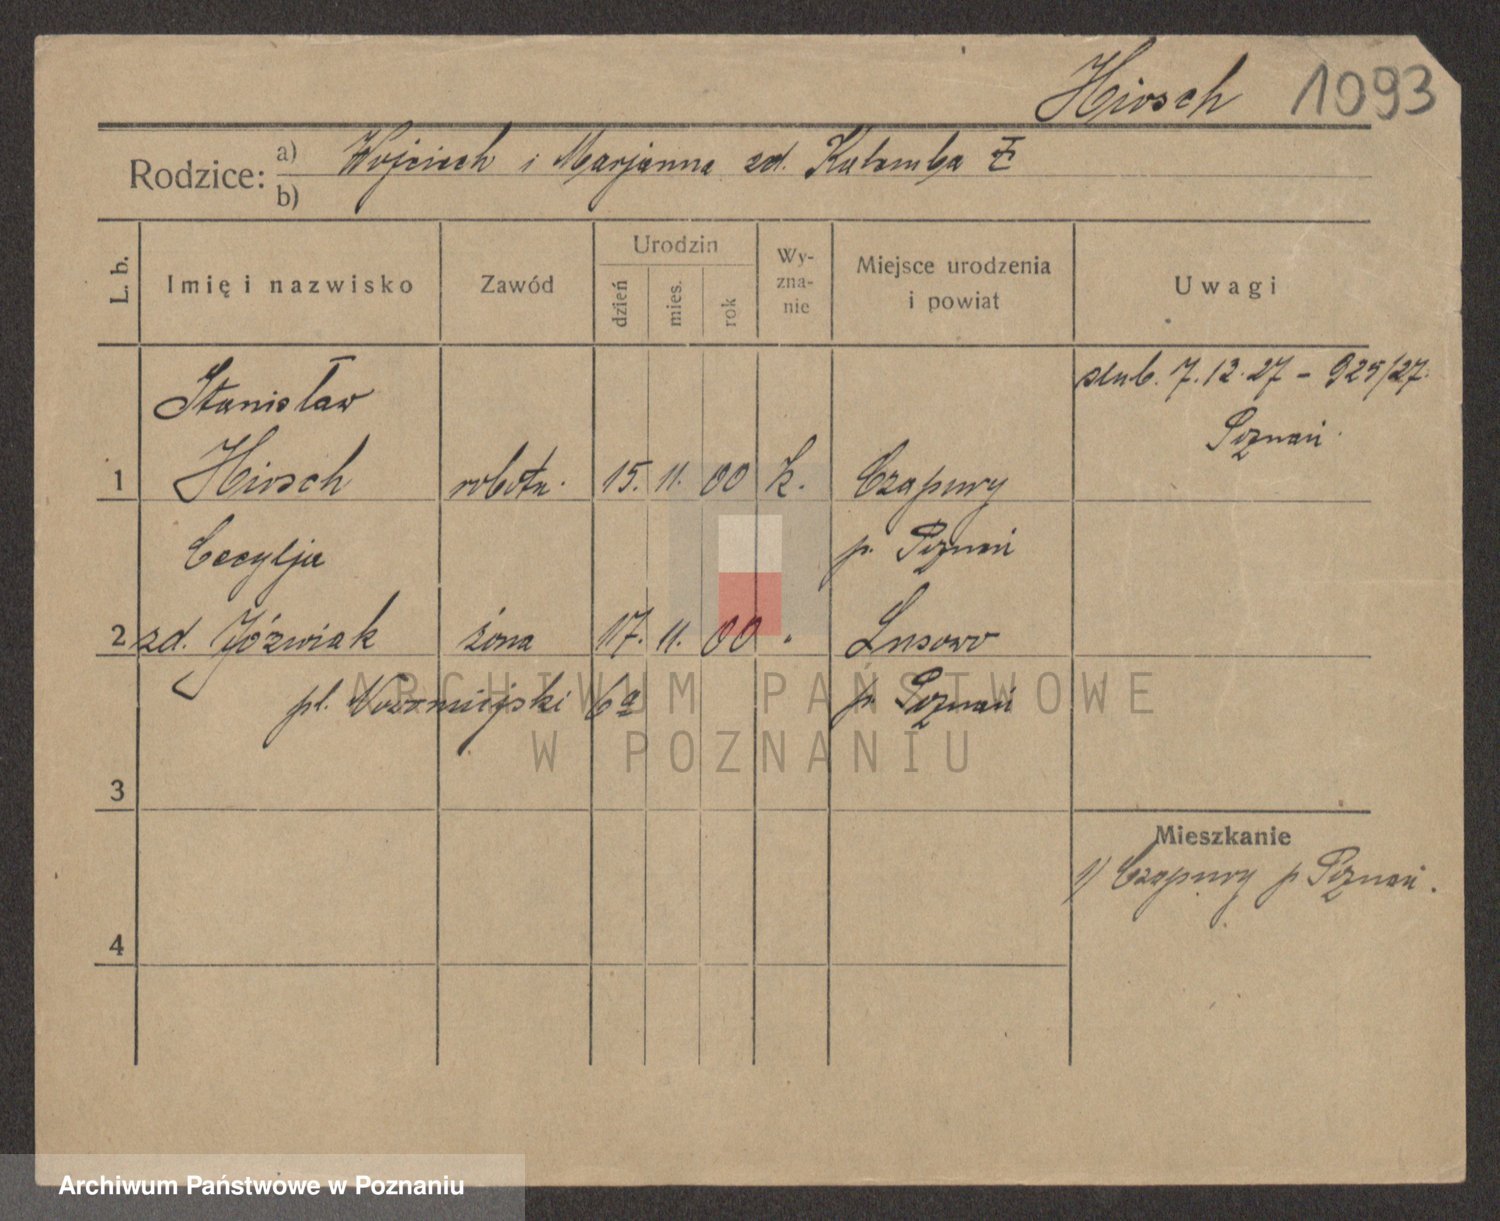 Hirsch 1093
Rodzice: a) Wojciech i Marjanna zd. Katamba
b)
L. b.
Imię i nazwisko
Zawód
Urodzin
dzień
mies.
rok
Wy-
zna-
nie
Miejsce urodzenia
i powiat
Uwagi
Stanisław
ślub. 7.12.27 – 925/27.
Poznań
1 Hirsch robotn. 15. 11. 00 k. Czapury
Cecylja p. Poznań
2 zd. Jóźwiak żona 17. 11. 00 " Lusowo
pl. Nowomiejski 6a p. Poznań
3
Mieszkanie
1) Czapury p Poznań.
4
ARCHIWUM PAŃSTWOWE
W POZNANIU
Archiwum Państwowe w Poznaniu